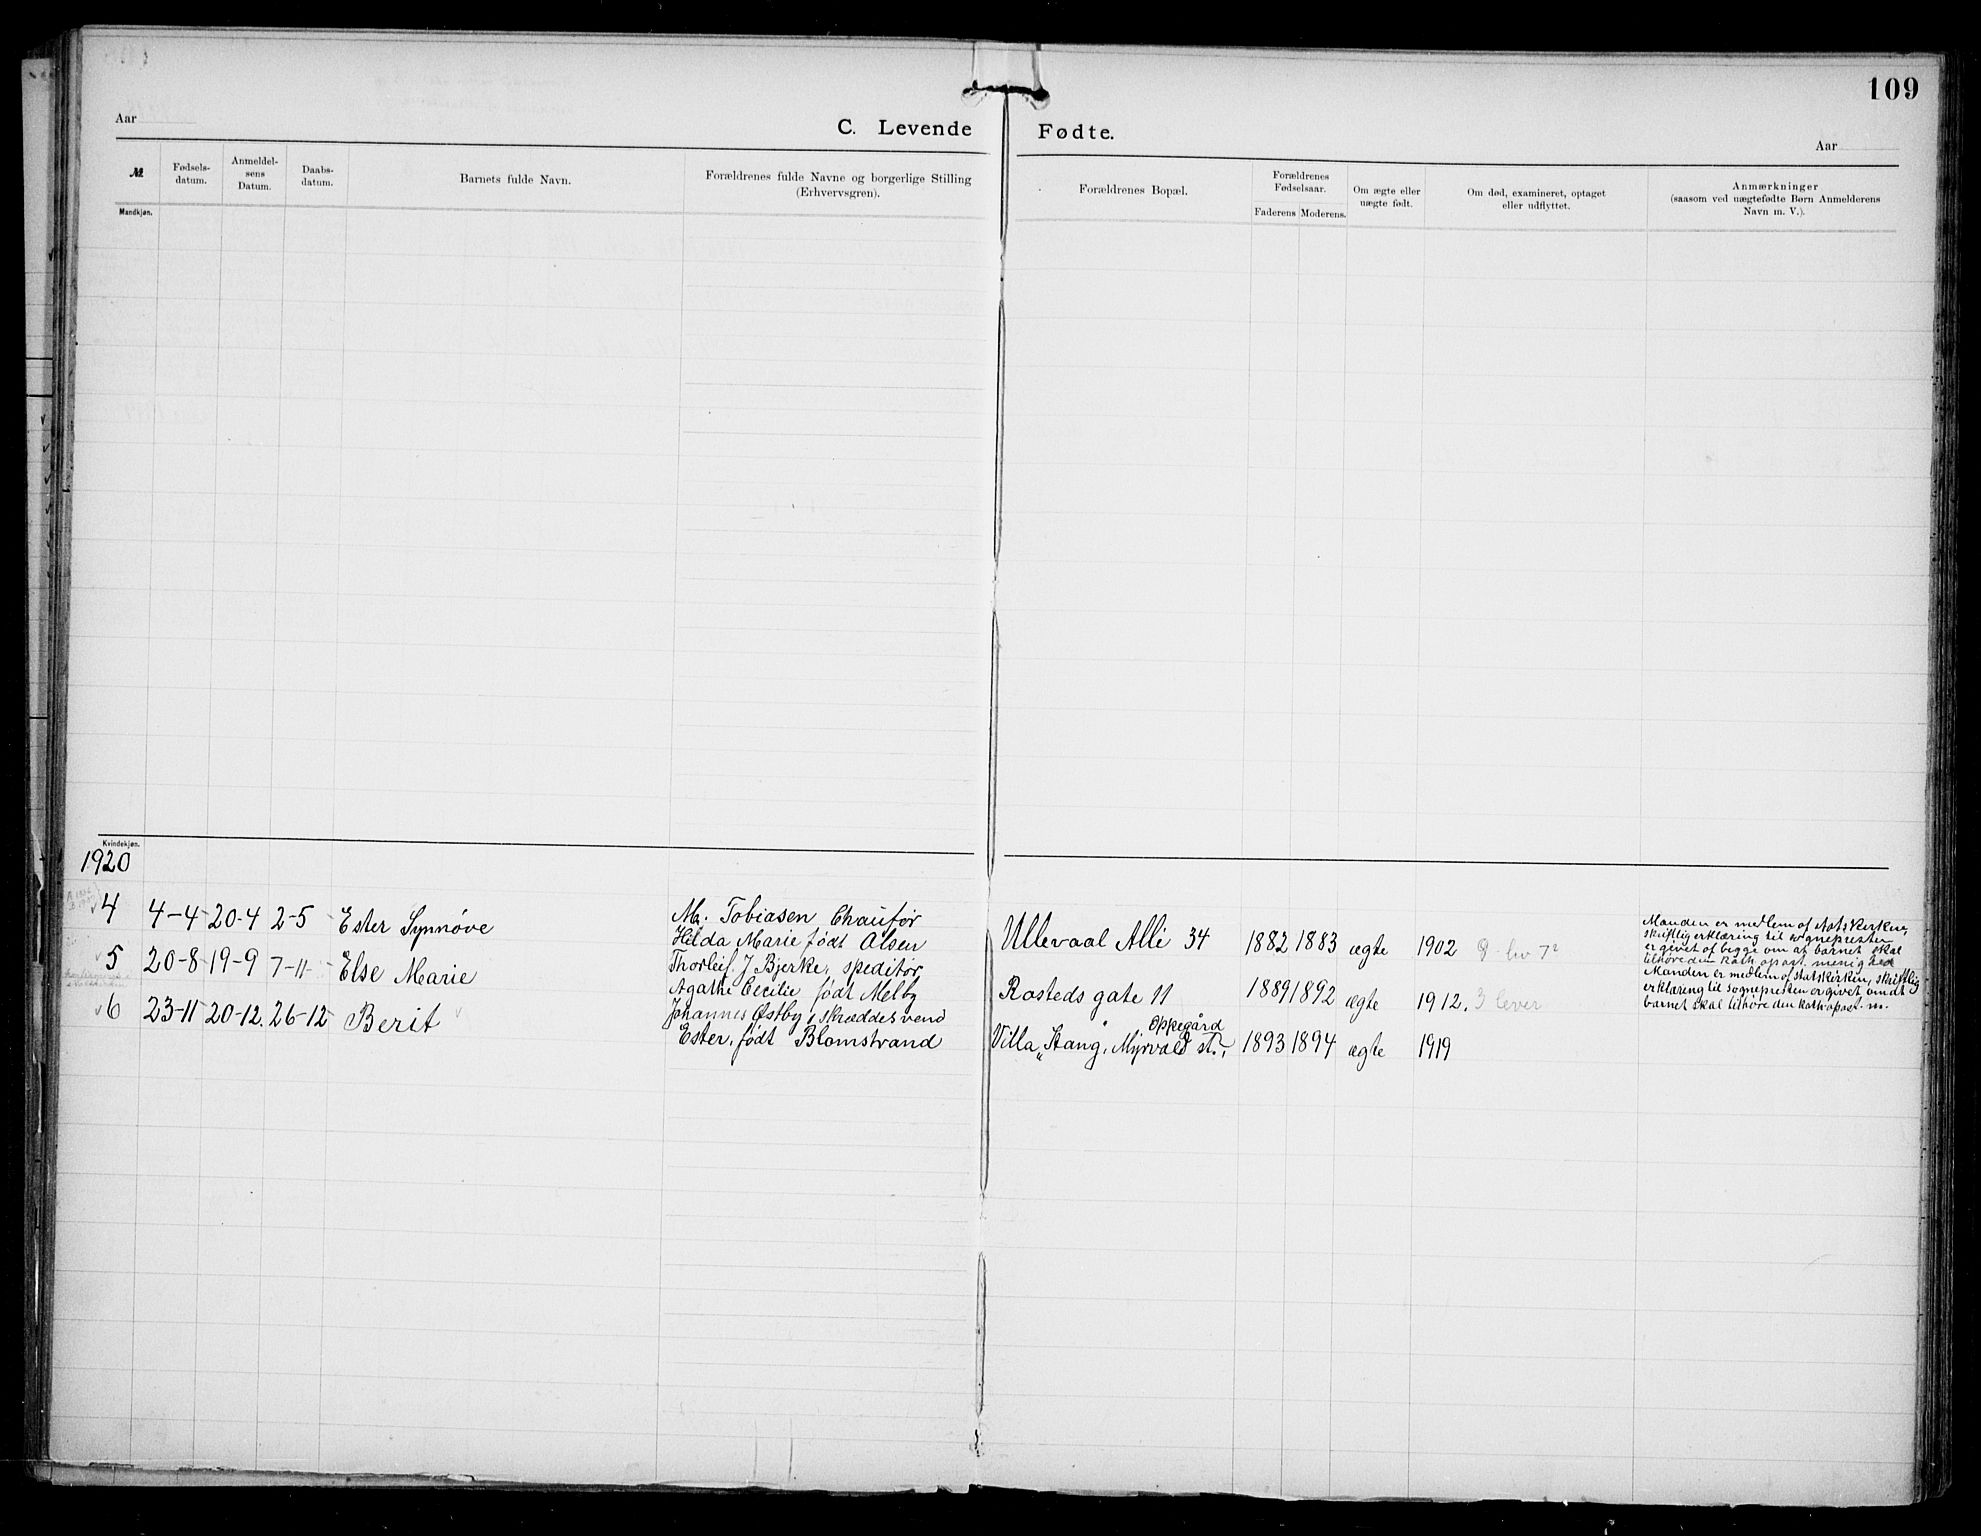 109
Aar
C. Levende Fødte.
Aar
№
Fødsels-
datum.
Anmeldel-
sens
Datum.
Daabs-
datum.
Barnets fulde Navn.
Forældrenes fulde Navne og borgerlige Stilling
(Erhvervsgren).
Forældrenes Bopæl.
Forældrenes
Fødselsaar.
Faderens Moderens.
Om ægte eller
uægte født.
Om død, examineret, optaget
eller udflyttet.
Anmærkninger
(saasom ved uægtefødte Børn Anmelderens
Navn m. V.).
Mandkjøn.
Kvindekjøn.
1920
4 4-4 20-4 2-5 Ester Synnøve
M. Tobiasen Chaufør
Hilda Marie født Olsen
Ullevaal Allé 34 1882 1883 ægte 1902
Manden er medlem af Statskerken,
skriftlig erklæring til sogneprester
er givet af begge om at barnet skal
tilhøre den Kath. apost. menighed
5 20-8 19-9 7-11 Else Marie
Thorleif J Bjerke, speditør
Agathe Cecilie født Melby
Rosteds gate 11 1889 1892 ægte 1912. 3 lever
Manden er medlem af statskerken, skriftlig
erklæring til sognepresten er givet om at
barnet skal tilhøre den kath. apost. m.
6 23-11 20-12. 26-12 Berit
Johannes Østby, skræddesvend
Ester, født Blomstrand
Oppegård
Villa „Stang", Myrvold st., 1893 1894 ægte 1919